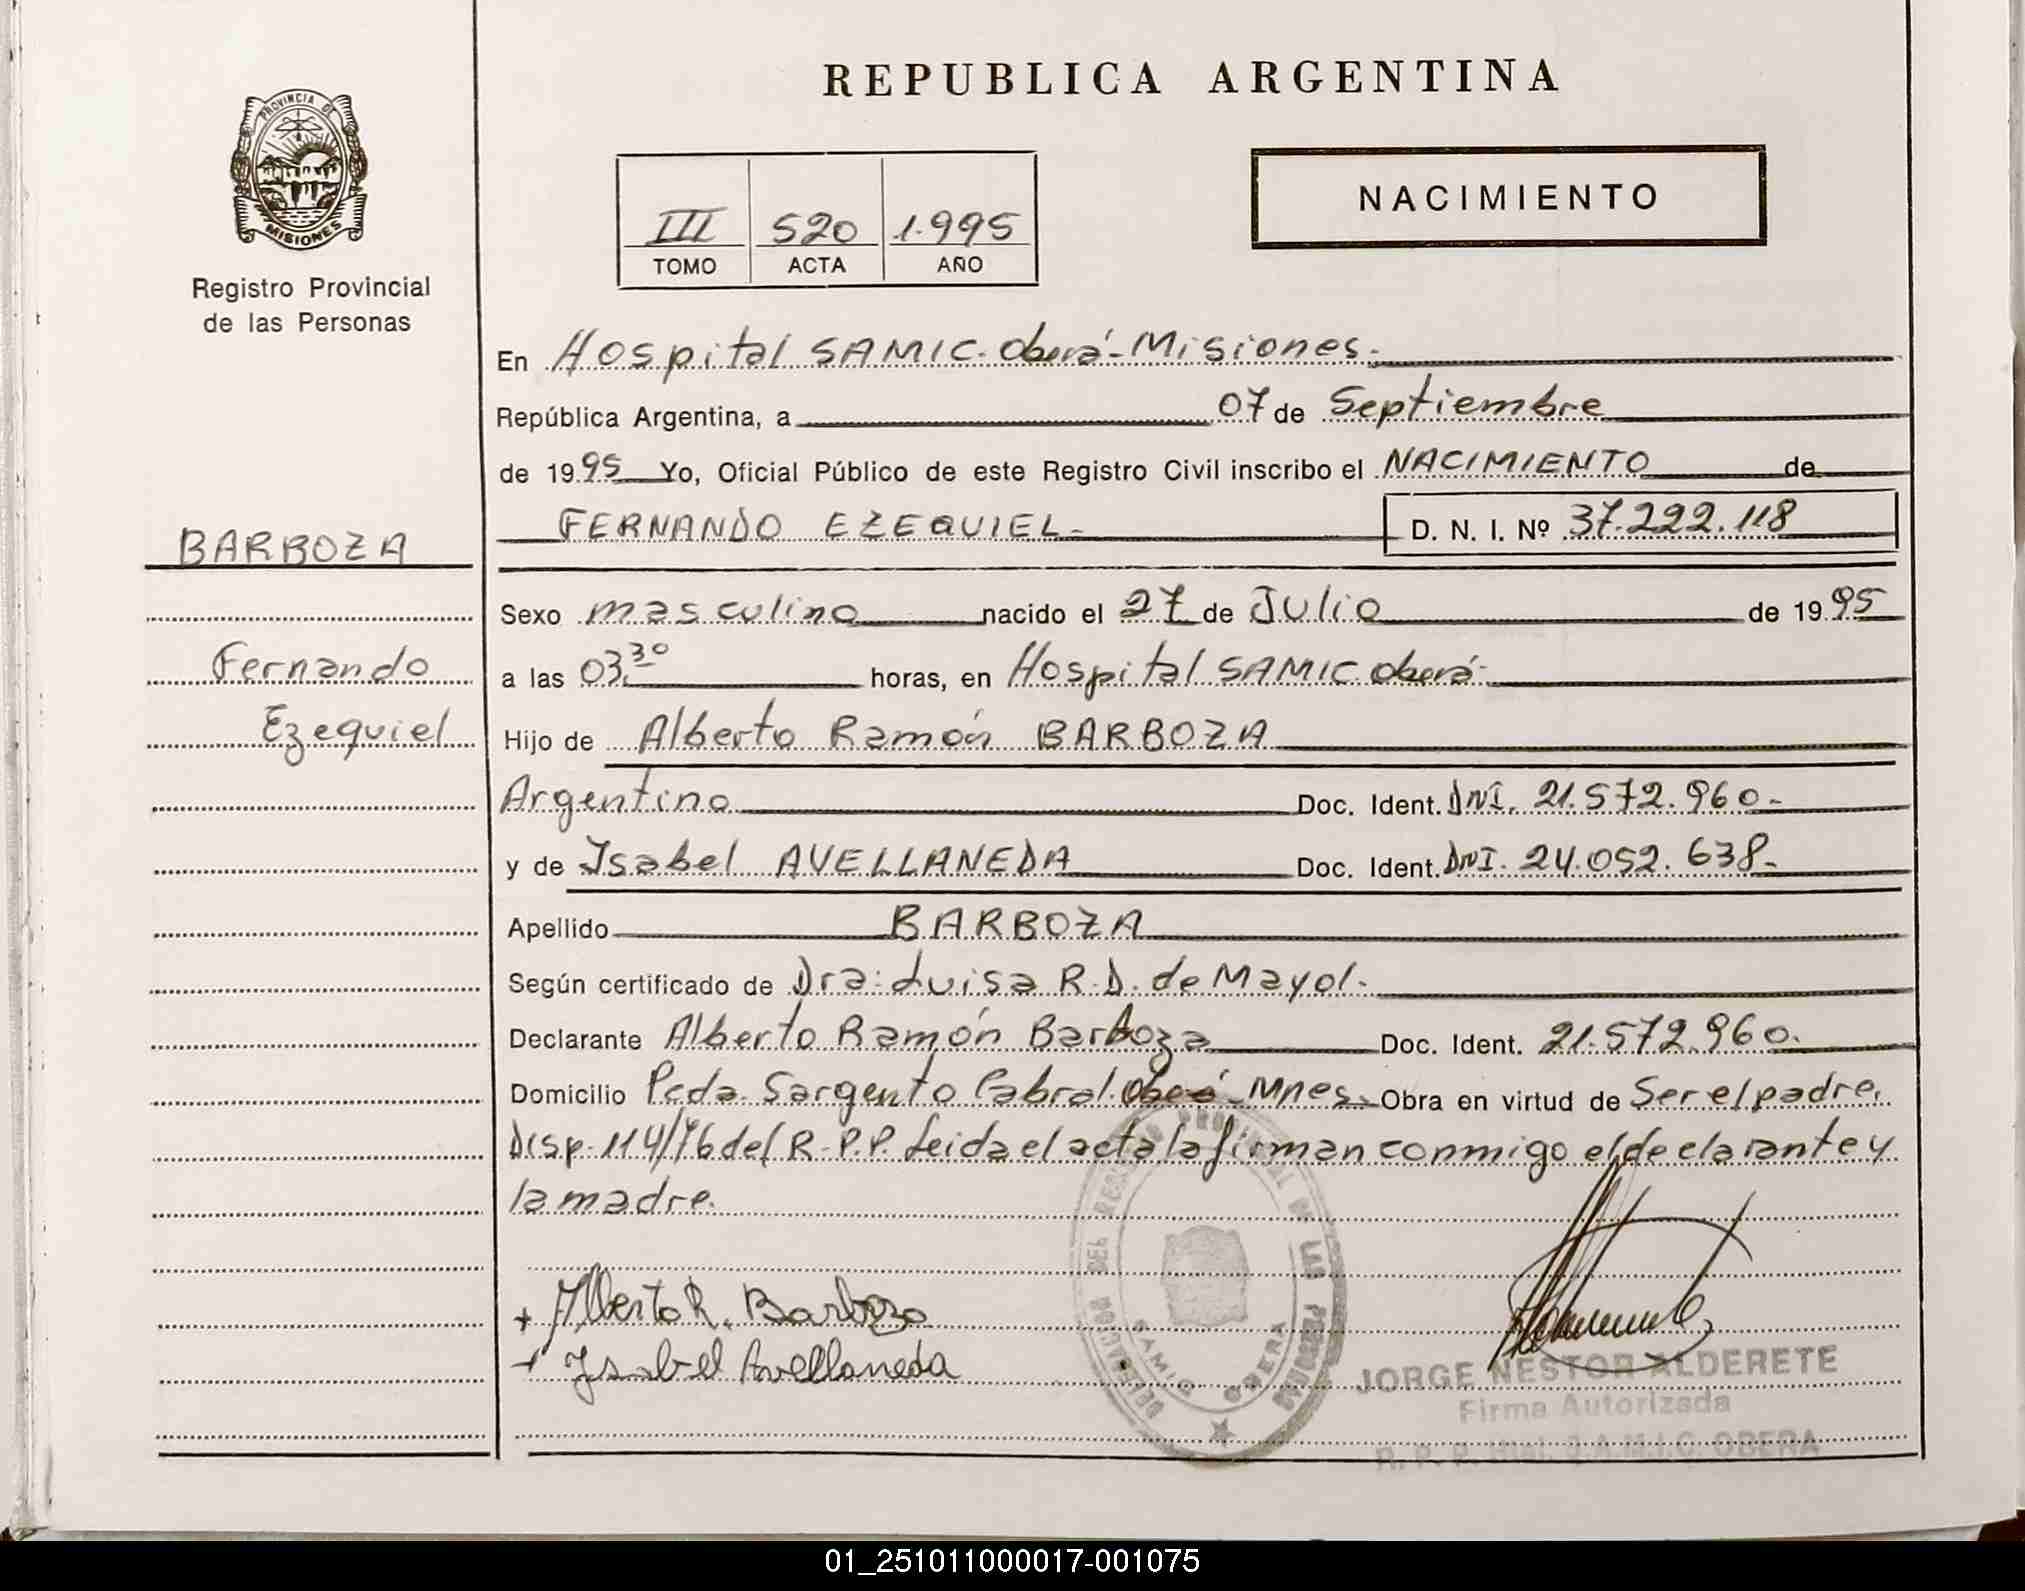 REPUBLICA ARGENTINA
PROVINCIA DE
MISIONES
Registro Provincial
de las Personas
III 520 1.995
TOMO ACTA AÑO
NACIMIENTO
En Hospital SAMIC. Oberá-Misiones.
República Argentina, a 07 de Septiembre
de 1995 Yo, Oficial Público de este Registro Civil inscribo el NACIMIENTO de
FERNANDO EZEQUIEL.- D. N. I. Nº 37.222.118
BARBOZA
Fernando
Ezequiel
Sexo masculino nacido el 27 de Julio de 1995
a las 03.30 horas, en Hospital SAMIC Oberá.
Hijo de Alberto Ramón BARBOZA
Argentino Doc. Ident. DNI. 21.572.960.-
y de Isabel AVELLANEDA Doc. Ident. DNI. 24.052.638.-
Apellido BARBOZA
Según certificado de Dra: Luisa R.D. de Mayol.
Declarante Alberto Ramón Barboza Doc. Ident. 21.572.960.
Domicilio Pcda. Sargento Cabral. Oberá-Mnes. Obra en virtud de Ser el padre.
Disp. 114/76 del R.P.P. Leida el acta la firman conmigo el declarante y
la madre.
+ Alberto R. Barboza
+ Ysabel Avellaneda
DELEGACION DEL REGISTRO PROVINCIAL DE LAS PERSONAS
SAMIC OBERA
JORGE NESTOR ALDERETE
Firma Autorizada
R. P. P. Htal. S.A.M.I.C. OBERA
01_251011000017-001075